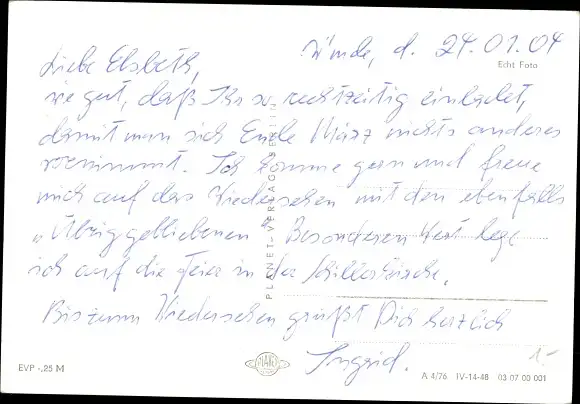 d. 24.01.04
Echt Foto
Liebe Elsbeth,
wie gut, daß Ihr so rechtzeitig einladet,
damit man sich Ende März nichts anderes
vornimmt. Ich komme gern und freue
mich auf das Wiedersehen mit den ebenfalls
„Übriggebliebenen“. Besonderen Wert lege
ich auf die Feier in der Schillerkirche.
Bis zum Wiedersehen grüßt Dich herzlich
Ingrid.
PLANET-VERLAG BERLIN
EVP -,25 M
PLANET
A 4/76 IV-14-48 03 07 00 001
1.-